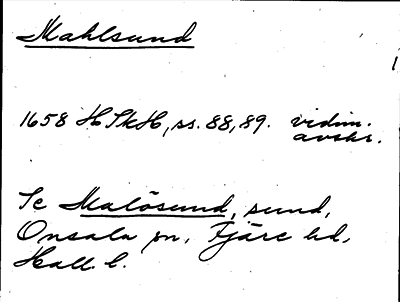 Mahlsund
1658 HSkH, ss. 88, 89. vidim.
avskr.
Se Malösund, sund,
Onsala sn, Fjäre hd,
Hall. l.